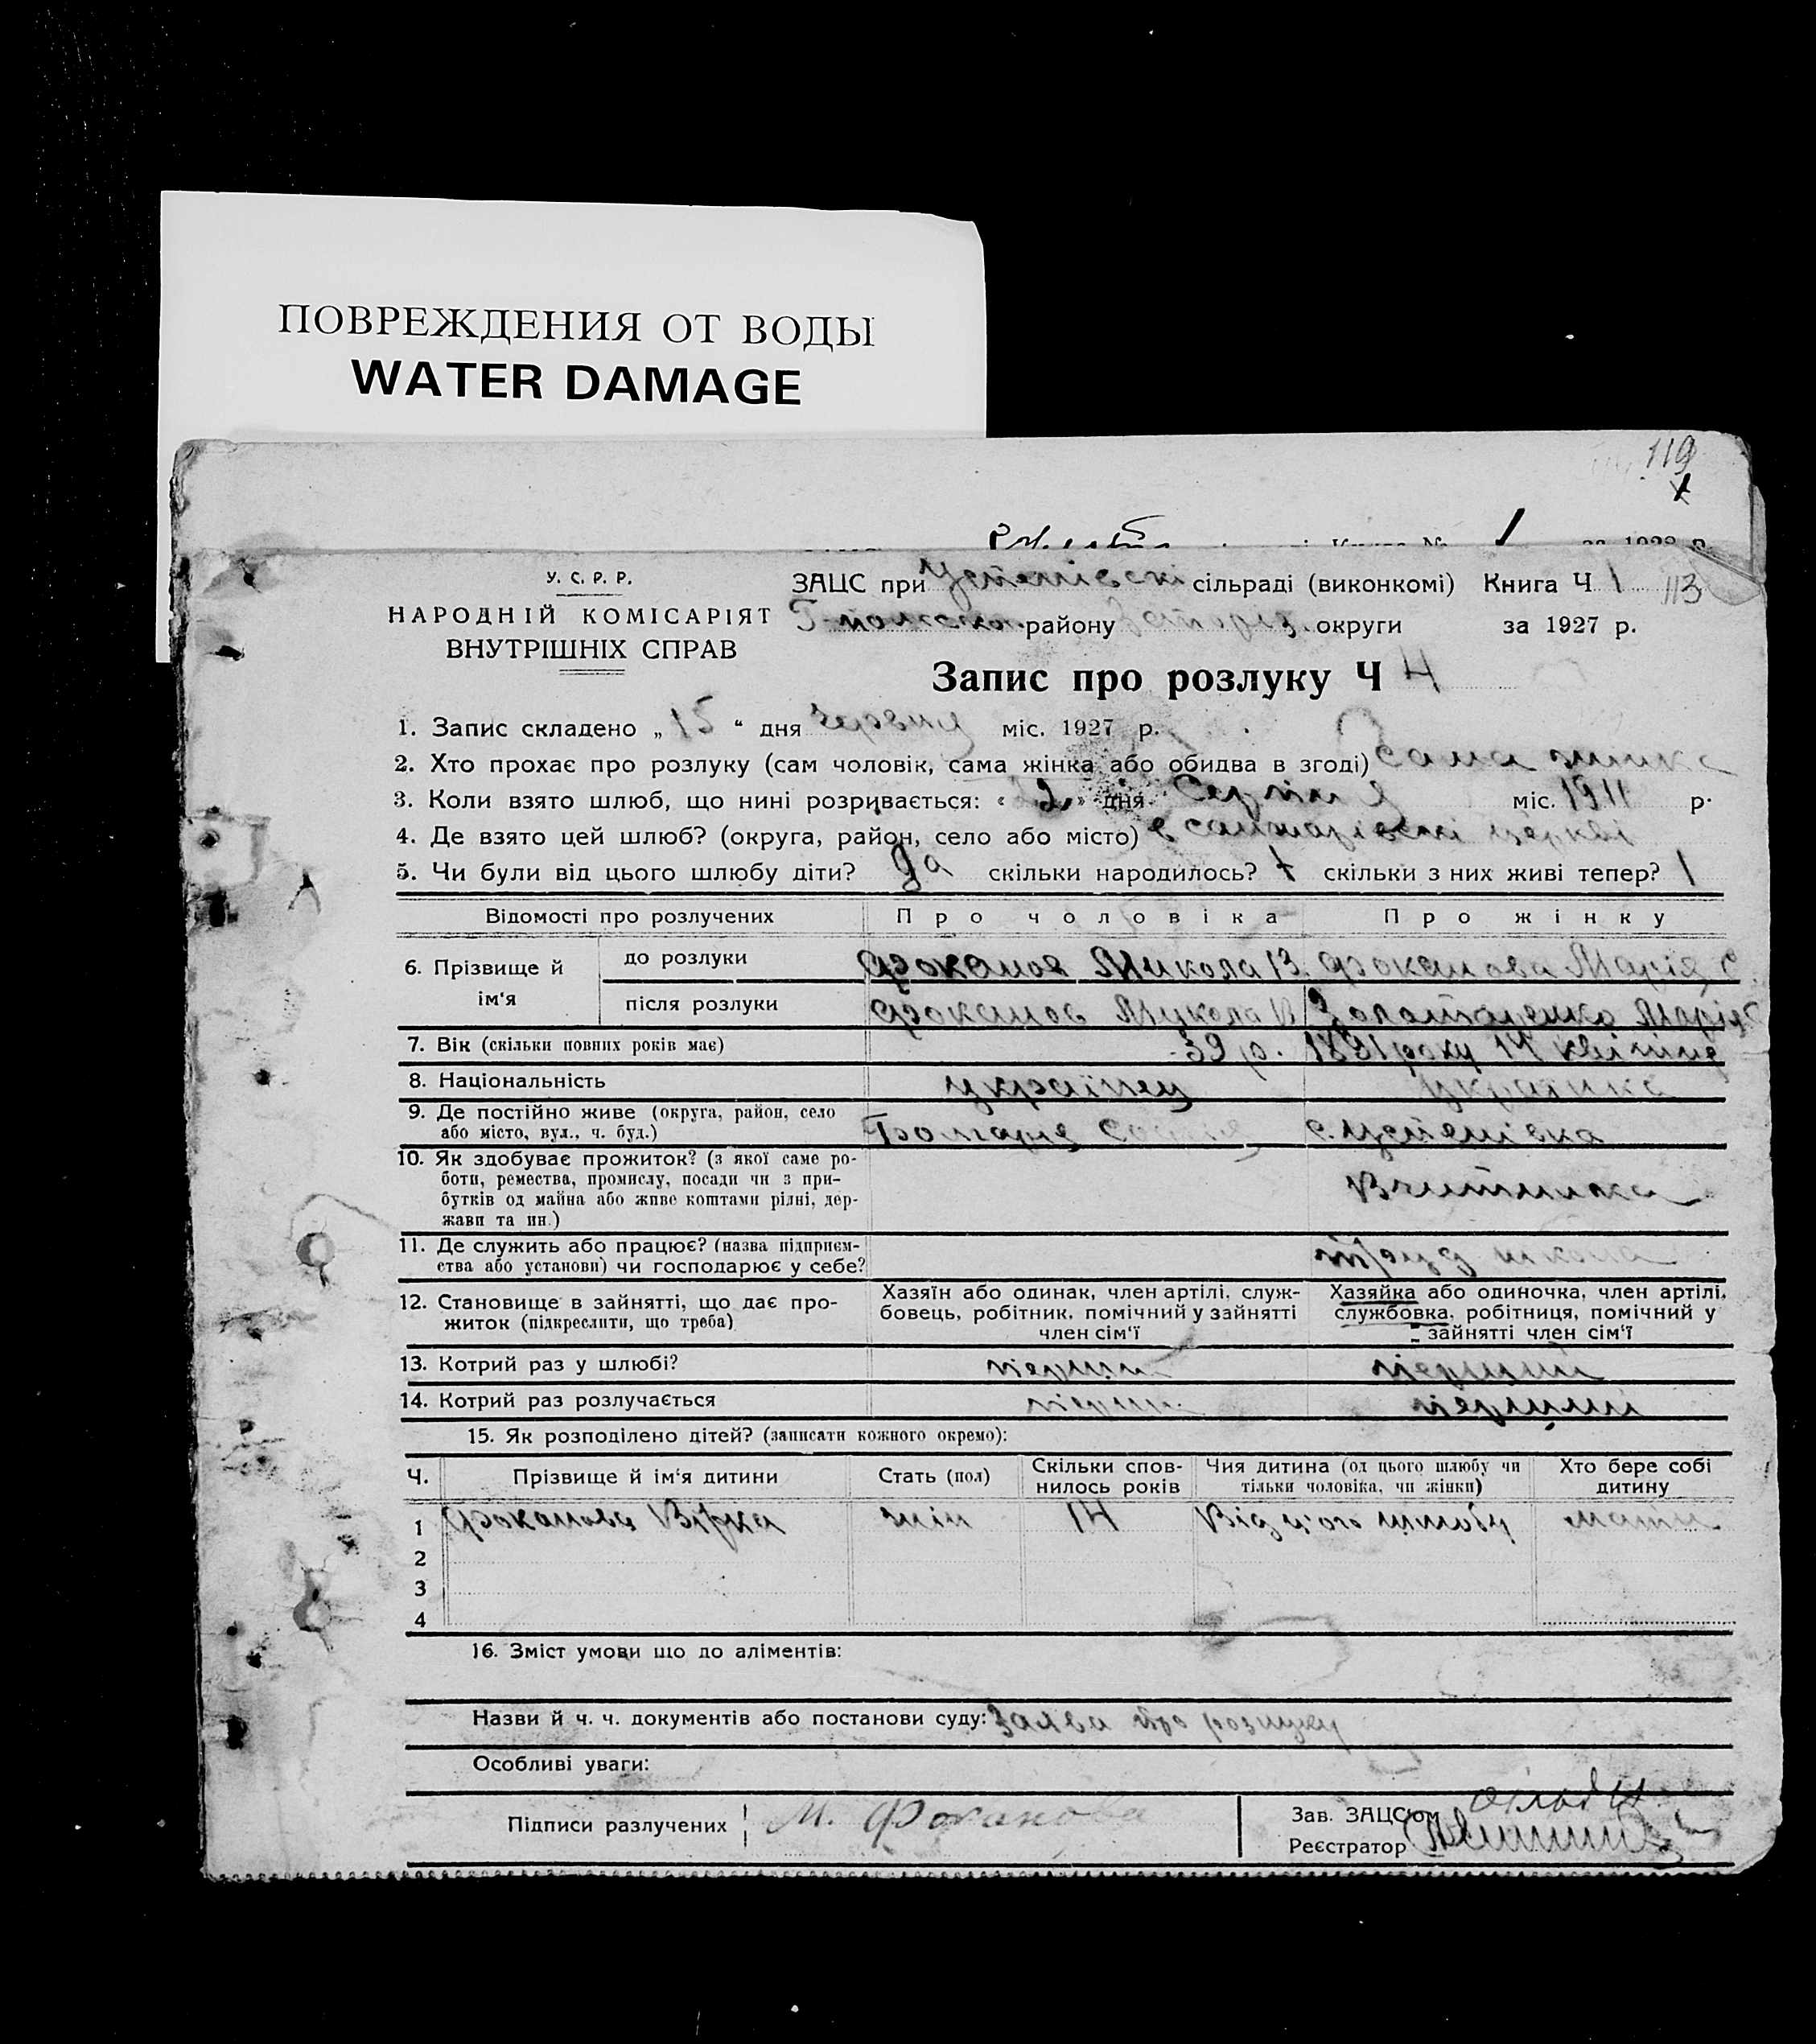 ПОВРЕЖДЕНИЯ ОТ ВОДЫ
WATER DAMAGE
119
1
У. С. Р. Р.
НАРОДНІЙ КОМІСАРІЯТ
ВНУТРІШНІХ СПРАВ
ЗАЦС при Успенівскі сільраді (виконкомі) Книга Ч 1 113
району округи за 1927 р.
Запис про розлуку Ч 4
1. Запис складено „ 15 “ дня червня міс. 1927 р.
2. Хто прохає про розлуку (сам чоловік, сама жінка або обидва в згоді) Сама жинка
3. Коли взято шлюб, що нині розривається: « 2 » дня Серпня міс. 1911 р.
4. Де взято цей шлюб? (округа, район, село або місто) в церкві
5. Чи були від цього шлюбу діти? да скільки народилось? 1 скільки з них живі тепер? 1
Відомості про розлучених Про чоловіка Про жінку
6. Прізвище й ім‘я до розлуки Фоканов Микола В. Фоканова Марія С
після розлуки Фоканов Микола В Золотаренко Марія С
7. Вік (скільки повних років має) 39 р. 1891 року 14 квітня
8. Національність українец українка
9. Де постійно живе (округа, район, село або місто, вул., ч. буд.) Болгария с. Успенівка
10. Як здобуває прожиток? (з якої саме роботи, ремества, промислу, посади чи з прибутків од майна або живе коштами рідні, держави та ин.) Вчителька
11. Де служить або працює? (назва підприємства або установи) чи господарює у себе? школа
12. Становище в зайнятті, що дає прожиток (підкреслити, що треба)
Хазяїн або одинак, член артілі, службовець, робітник, помічний у зайнятті член сім‘ї
Хазяйка або одиночка, член артілі, службовка, робітниця, помічний у зайнятті член сім‘ї
13. Котрий раз у шлюбі? перший перший
14. Котрий раз розлучається перший перший
15. Як розподілено дітей? (записати кожного окремо):
Ч. Прізвище й ім‘я дитини Стать (пол) Скільки сповнилось років Чия дитина (од цього шлюбу чи тільки чоловіка, чи жінки) Хто бере собі дитину
1 Фоканова Вірка жін 14 Від цього шлюбу мати
2
3
4
16. Зміст умови що до аліментів:
Назви й ч. ч. документів або постанови суду: Заява про розлуку
Особливі уваги:
Підписи разлучених М. Фоканова
Зав. ЗАЦСом
Реєстратор